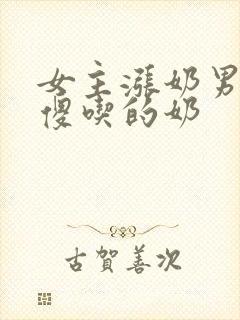 女主涨奶男
傻喫的奶
古賀善次